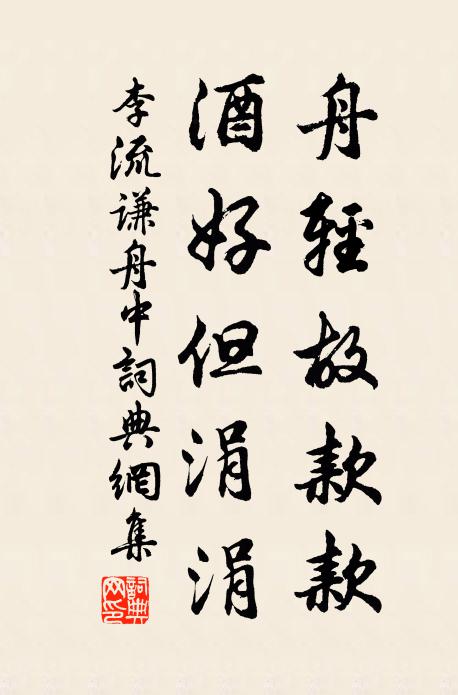 舟輕故款款
酒好但涓涓
李流謙舟中詞典網集
詞典网印